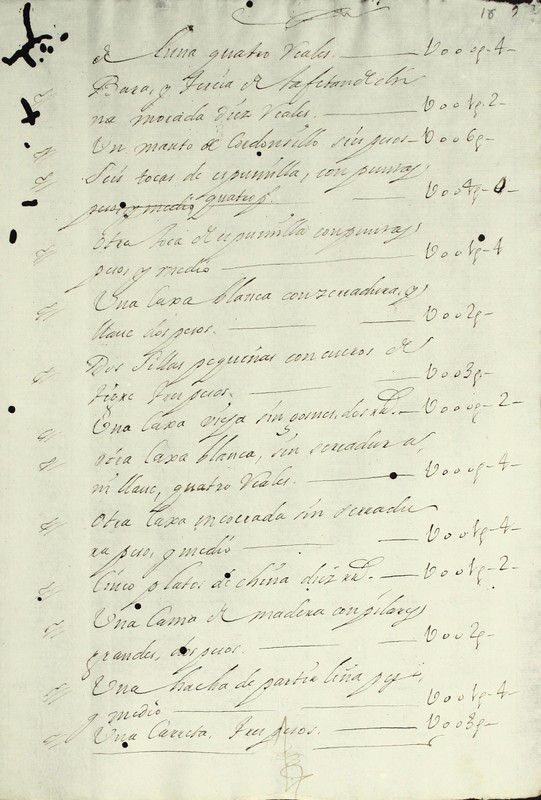 18
de china quatro Reales. — U000p-4-
Bara, y tercia de tafetan de chi
na morada diez Reales. — U001p-2-
Un manto de Cordonsillo seis pesos — U006p-
Seis tocas de espumilla, con puntas
pesos y medio quatro p. — U004p-0-
otra toca de espumilla con puntas
peso, y medio — U001p-4
Una Caxa blanca con zerradura, y
llaue dos pesos. — U002p-
Dos Sillas pequeñas con cueros de
tres pesos. — U003p-
Una Caxa vieja sin gonses, dos rrs. — U000p-2-
otra Caxa blanca, sin serradura
ni llaue, quatro Reales. — U000p-4-
otra Caxa encorada sin serradu
ra peso, y medio — U001p-4-
Cinco platos de china diez rrs. — U001p-2-
Una Cama de madera con pilares
grandes, dos pesos. — U002p-
Una hacha de partir leña peso
y medio — U001p-4-
Una Carreta. tres pesos. — U003p-